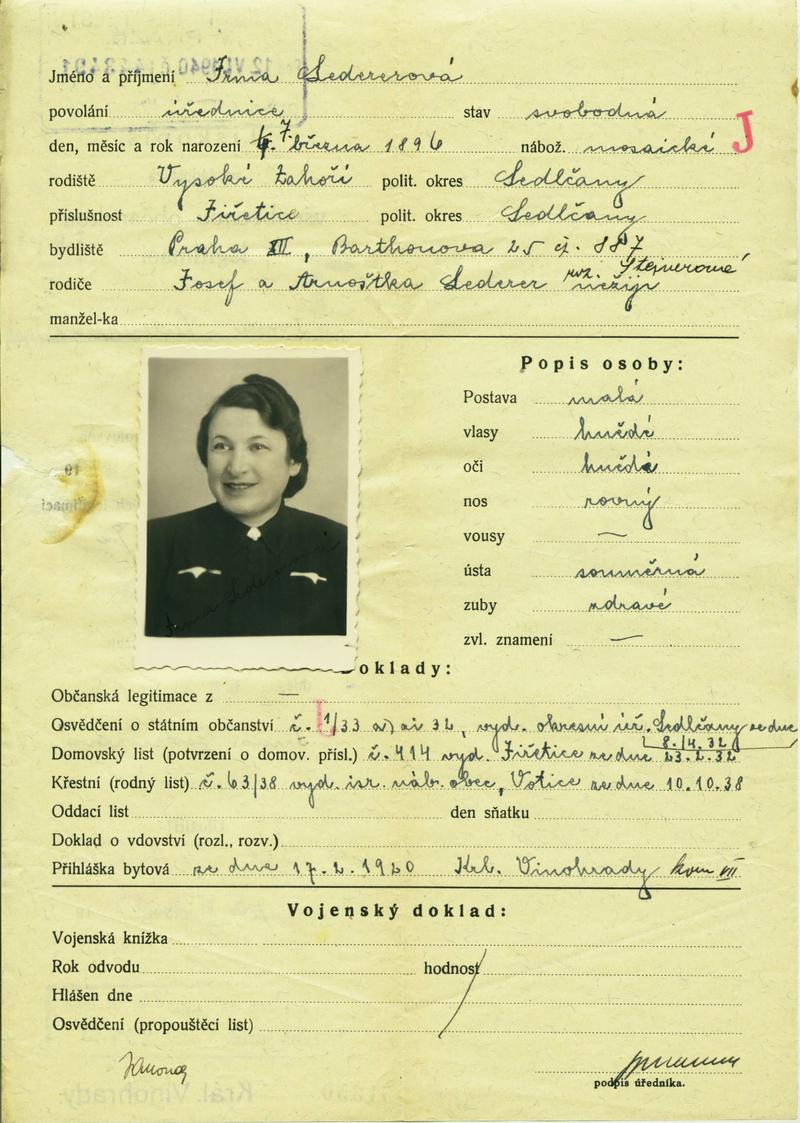 Jméno a příjmení Irma Ledererová
povolání úřednice stav svobodná
den, měsíc a rok narození 7. března 1896 nábož. mosaické J
rodiště Vysoký Zahoří polit. okres Sedlčany
příslušnost Jiřetice polit. okres Sedlčany
bydliště Praha XII, Barthouova 25 čj. 887
rodiče Josef a Arnoštka Lederer roz. Stejnerová
manžel-ka
Popis osoby:
Postava malá
vlasy hnědé
oči hnědé
nos rovný
vousy —
ústa souměrná
zuby zdravé
zvl. znamení —
Irma Ledererová
oklady:
Občanská legitimace z —
Osvědčení o státním občanství č. 1/33 ai 32, vyd. okresní úř. Sedlčany ze dne
8./4. 32
Domovský list (potvrzení o domov. přísl.) č. 414 vyd. Jiřetice ze dne 23.2.32
Křestní (rodný list) č. 63/38 vyd. isr. náb. obec, Votice ze dne 10.10.38
Oddací list den sňatku
Doklad o vdovství (rozl., rozv.)
Přihláška bytová ze dne 17.2.1920 Krl. Vinohrady kom VII
Vojenský doklad:
Vojenská knížka
Rok odvodu hodnost
Hlášen dne
Osvědčení (propouštěcí list)
podpis úředníka.